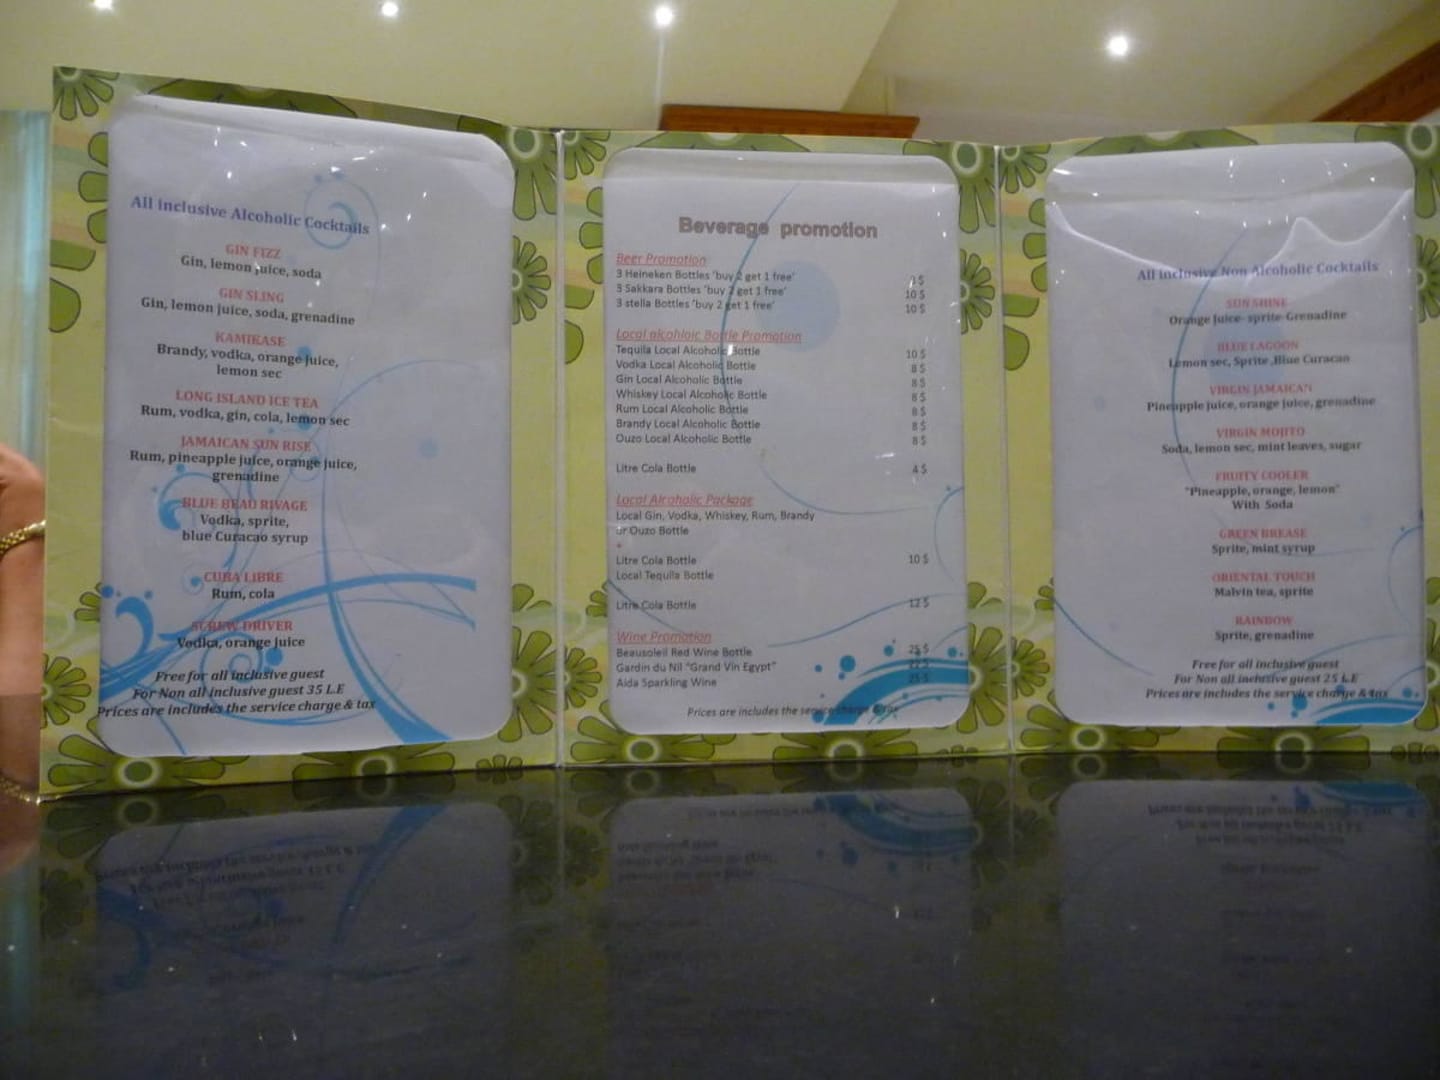 All inclusive Alcoholic Cocktails
GIN FIZZ
Gin, lemon juice, soda
GIN SLING
Gin, lemon juice, soda, grenadine
KAMIKASE
Brandy, vodka, orange juice,
lemon sec
LONG ISLAND ICE TEA
Rum, vodka, gin, cola, lemon sec
JAMAICAN SUN RISE
Rum, pineapple juice, orange juice,
grenadine
BLUE BEAU RIVAGE
Vodka, sprite,
blue Curacao syrup
CUBA LIBRE
Rum, cola
SCREW DRIVER
Vodka, orange juice
Free for all inclusive guest
For Non all inclusive guest 35 L.E
Prices are includes the service charge & tax
Beverage promotion
Beer Promotion
3 Heineken Bottles 'buy 2 get 1 free' $
3 Sakkara Bottles 'buy 2 get 1 free' 10 $
3 stella Bottles 'buy 2 get 1 free' 10 $
Local alcohloic Bottle Promotion
Tequila Local Alcoholic Bottle 10 $
Vodka Local Alcoholic Bottle 8 $
Gin Local Alcoholic Bottle 8 $
Whiskey Local Alcoholic Bottle 8 $
Rum Local Alcoholic Bottle 8 $
Brandy Local Alcoholic Bottle 8 $
Ouzo Local Alcoholic Bottle 8 $
Litre Cola Bottle 4 $
Local Alcoholic Package
Local Gin, Vodka, Whiskey, Rum, Brandy
or Ouzo Bottle
+
Litre Cola Bottle 10 $
Local Tequila Bottle
Litre Cola Bottle 12 $
Wine Promotion
Beausoleil Red Wine Bottle 25 $
Gardin du Nil "Grand Vin Egypt"
Aida Sparkling Wine 25 $
Prices are includes the service charge & tax
All inclusive Non Alcoholic Cocktails
SUN SHINE
Orange Juice- sprite-Grenadine
BLUE LAGOON
Lemon sec, Sprite ,Blue Curacao
VIRGIN JAMAICAN
Pineapple juice, orange juice, grenadine
VIRGIN MOJITO
Soda, lemon sec, mint leaves, sugar
FRUITY COOLER
"Pineapple, orange, lemon"
With Soda
GREEN BREASE
Sprite, mint syrup
ORIENTAL TOUCH
Malvin tea, sprite
RAINBOW
Sprite, grenadine
Free for all inclusive guest
For Non all inclusive guest 25 L.E
Prices are includes the service charge & tax